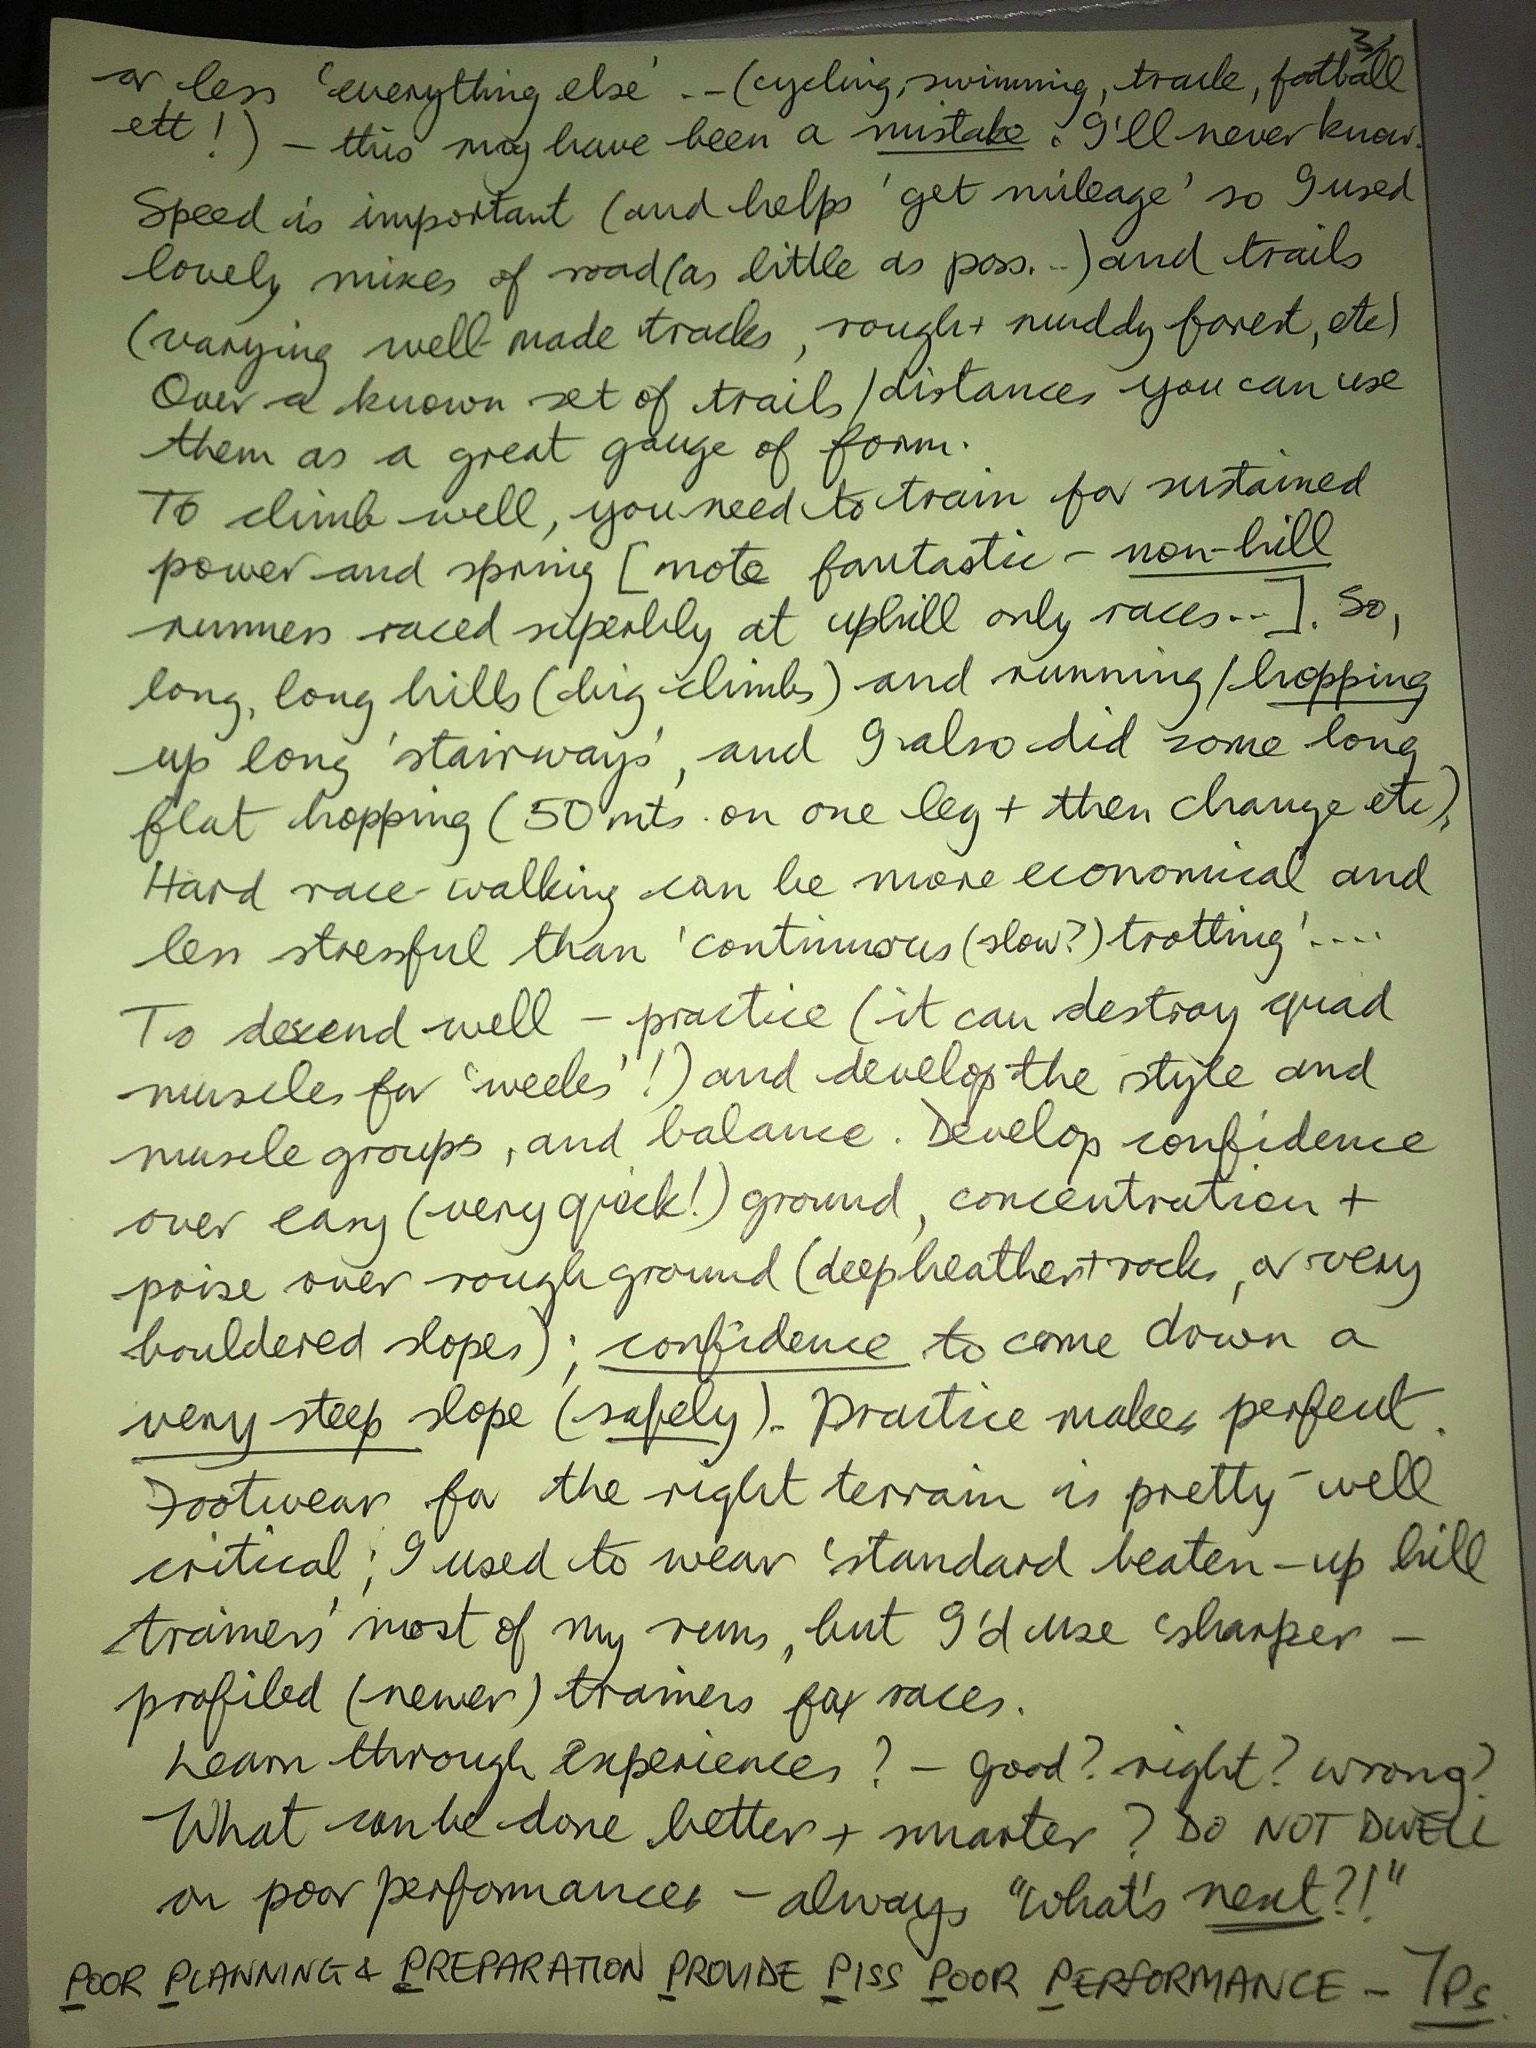 3/
or less 'everything else' .. – (cycling, swimming, track, football
ett!) – this may have been a mistake. I'll never know.
Speed is important (and helps 'get mileage' so I used
lovely mixes of road (as little as poss...) and trails
(varying well-made tracks, rough + muddy forest, etc)
Over a known set of trails/distances you can use
them as a great gauge of form.
To climb well, you need to train for sustained
power and spring [note fantastic – non-hill
runners raced superbly at uphill only races...]. So,
long, long hills (big climbs) and running/hopping
up long 'stairways', and I also did some long
flat hopping (50 mts. on one leg + then change etc).
Hard race-walking can be more economical and
less stressful than 'continuous (slow?) trotting'....
To descend well – practice (it can destroy quad
muscles for 'weeks'!) and develop the style and
muscle groups, and balance. Develop confidence
over easy (very quick!) ground, concentration +
poise over rough ground (deep heather + rocks, or very
bouldered slopes); confidence to come down a
very steep slope (safely). Practice makes perfect.
Footwear for the right terrain is pretty-well
critical; I used to wear 'standard beaten-up hill
trainers' most of my runs, but I'd use 'sharper –
profiled (newer) trainers for races.
Learn through experiences? – good? right? wrong?
What can be done better + smarter? DO NOT DWELL
on poor performances – always "What's next?!"
POOR PLANNING & PREPARATION PROVIDE PISS POOR PERFORMANCE – 7Ps.